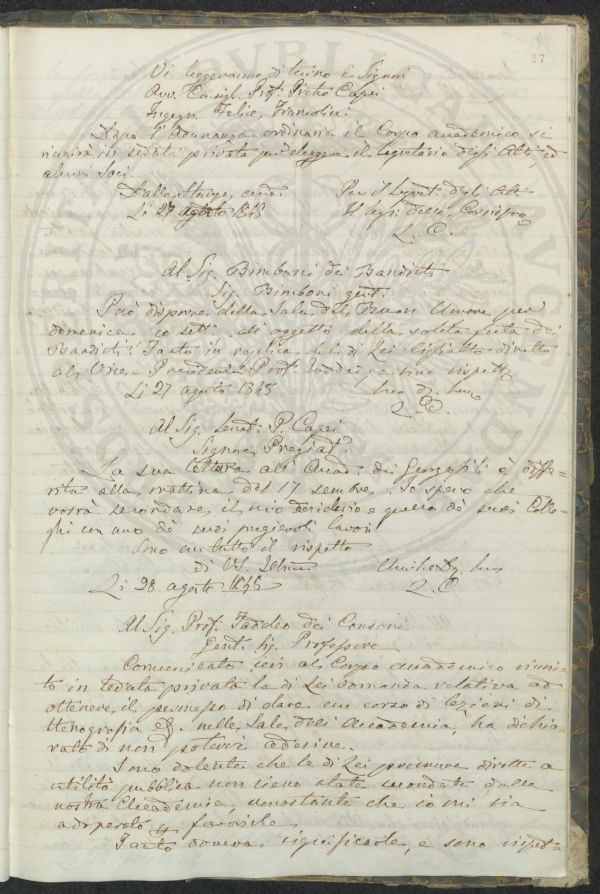 27
Vi leggeranno di turno i Signori
Avv. Consigl. Prof. Pietro Capei
Ingegn. Felice Francolini
Dopo l'adunanza ordinaria il Corpo accademico si
riunirà in seduta privata per eleggere il Segretario degli Atti, ed
alcuni Soci.
Dalle Stanze accad.
Li 27 agosto 1848
Per il Segret. degli Atti
Il Segr. delle Corrispon
L. C.
Al Sig. Bimboni dei Bandisti
Sig. Bimboni gent.
Può disporre della Sala del Buon Umore per
domenica 10 sett. all'oggetto della solita festa dei
Bandisti. Tanto in replica del di Lei biglietto diretto
al Vice-Presidente Prof. Taddei, e sono rispett.
Li 27 agosto 1848
L. C.
Al Sig. Senat. P. Capei
Signore Pregiat.
La sua lettura all'Accad. dei Georgofili è diffe-
rita alla mattina del 17 sembre. Io spero che
vorrà secondare il mio desiderio e quello de' suoi Colle-
ghi con uno de' suoi pregievoli lavori
Sono con tutto il rispetto
di VS. Illma
Li 28 agosto 1848
L. C.
Al Sig. Prof. Taddeo dei Consoni
Gent. Sig. Professore
Comunicato ieri al Corpo accademico riuni-
to in seduta privata la di Lei domanda relativa ad
ottenere il permesso di dare un corso di lezioni di
stenografia nelle Sale dell'Accademia, ha dichia-
rato di non potervi aderire.
Sono dolente che le di Lei premure dirette a
utilità pubblica non sieno state secondate dalla
nostra Accademia, nonostante che io mi sia
adoperato favorevole.
Tanto doveva significarle, e sono rispet-